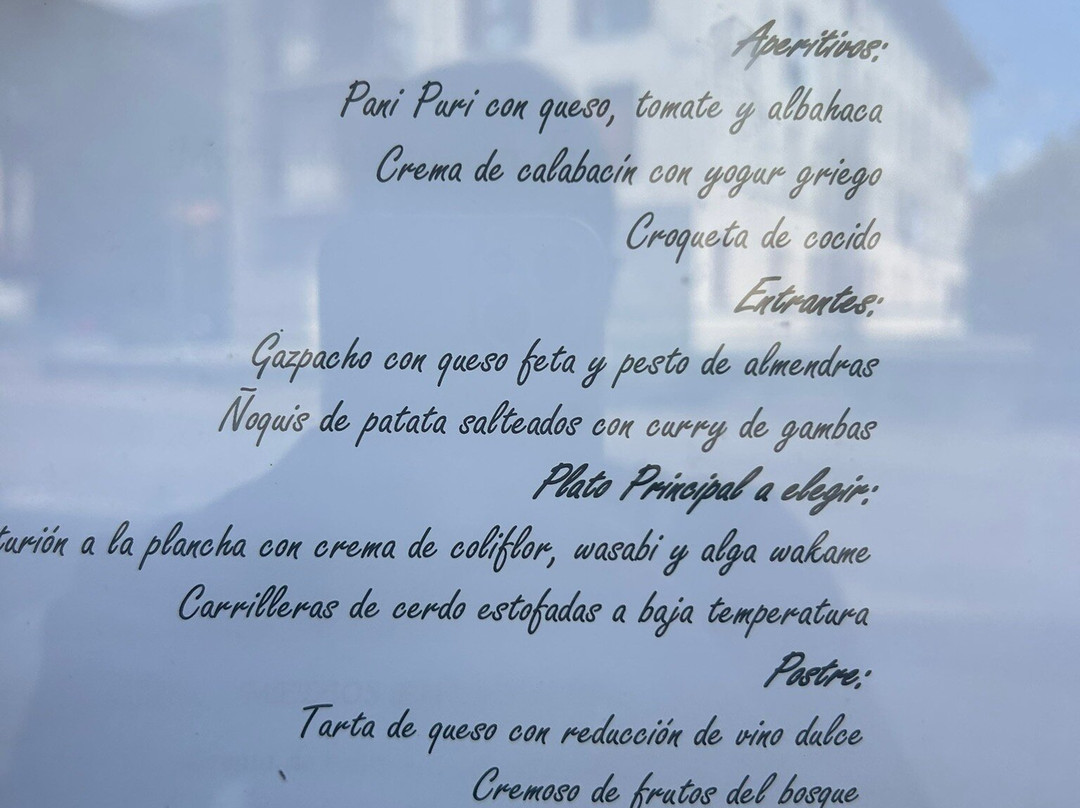 Aperitivos:
Pani Puri con queso, tomate y albahaca
Crema de calabacín con yogur griego
Croqueta de cocido
Entrantes:
Gazpacho con queso feta y pesto de almendras
Ñoquis de patata salteados con curry de gambas
Plato Principal a elegir:
turión a la plancha con crema de coliflor, wasabi y alga wakame
Carrilleras de cerdo estofadas a baja temperatura
Postre:
Tarta de queso con reducción de vino dulce
Cremoso de frutos del bosque